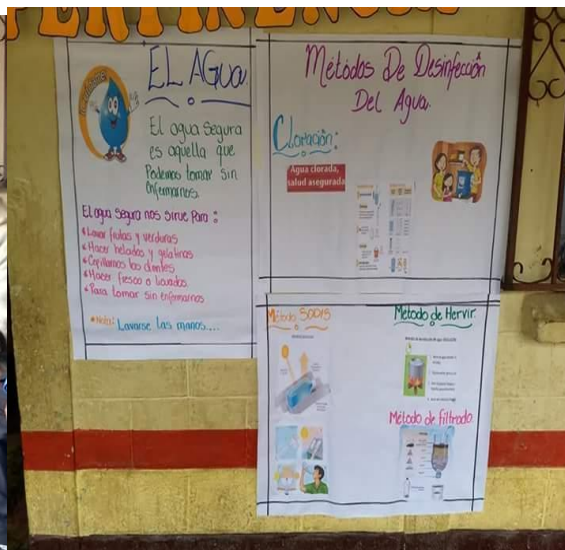 PERTINENCIA
EL AGUA
El agua segura
es aquella que
Podemos tomar sin
enfermarnos.
El agua segura nos sirve Para :
Lavar frutas y verduras
Hacer helados y gelatinas
Cepillarnos los dientes
Hacer fresco o licuados
Para tomar sin enfermarnos
Nota: Lavarse las manos....
Métodos De Desinfección
Del Agua.
Cloración:
Agua clorada,
salud asegurada
Método SODIS
Método de Hervir.
Método de filtrado.